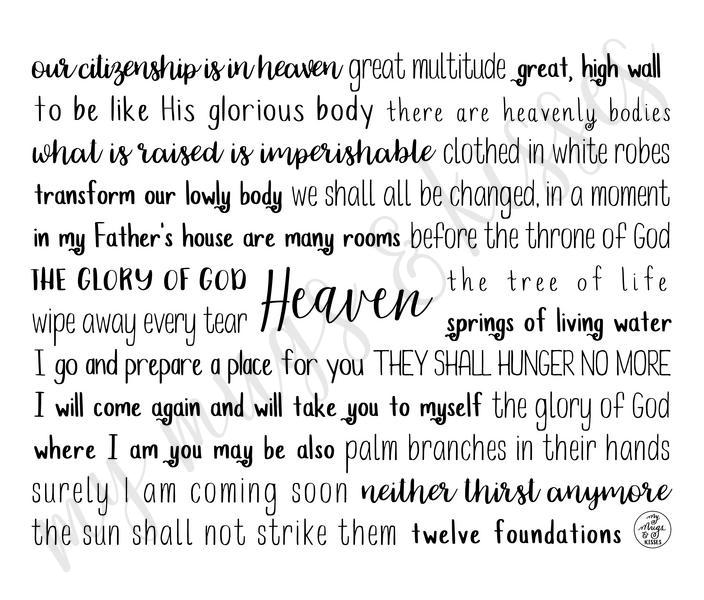 our citizenship is in heaven great multitude great, high wall
to be like His glorious body there are heavenly bodies
what is raised is imperishable clothed in white robes
transform our lowly body we shall all be changed, in a moment
in my Father's house are many rooms before the throne of God
THE GLORY OF GOD
wipe away every tear
Heaven
the tree of life
springs of living water
I go and prepare a place for you THEY SHALL HUNGER NO MORE
I will come again and will take you to myself the glory of God
where I am you may be also palm branches in their hands
surely I am coming soon neither thirst anymore
the sun shall not strike them twelve foundations
my
Mugs
&
KISSES
my mugs & kisses